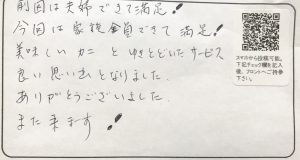 前回は夫婦できて満足!
今回は家族全員できて満足!
美味しいカニとゆきとどいたサービス
良い思い出となりました.
ありがとうございました.
また来ます!
スマホから投稿可能。
下記チェック欄を記入
後、フロントへご持参
下さい。